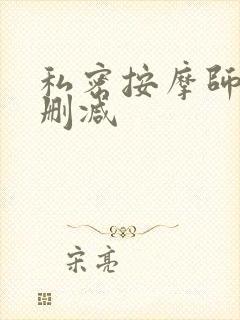 私密按摩師
删减
宋亮